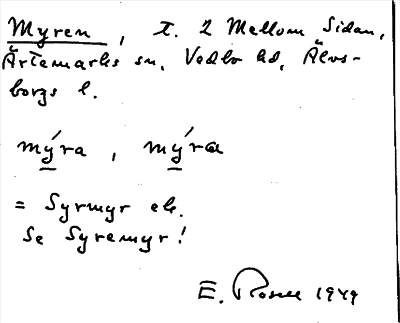 Myren, t. 2 Mellom Sidan,
Ärtemarks sn, Vedbo hd, Älvs-
borgs l.
mýra, mýra
= Syrmyr ek.
Se Syremyr!
E. Rosell 1949